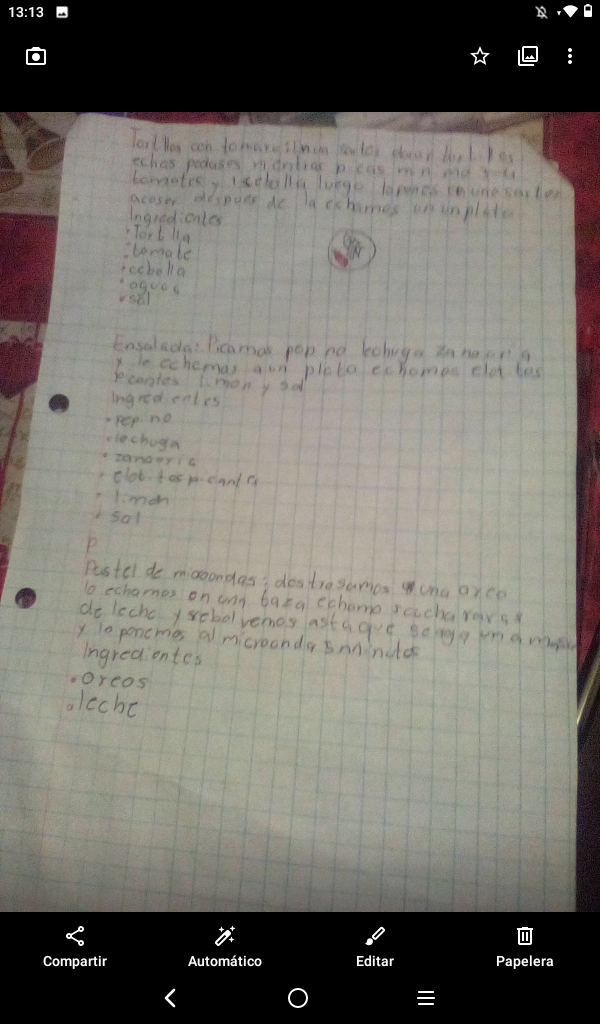 13:13
Tortillas con tomare: En un sarten doran tortillas
echas pedasos mientras picas
tomates y 1 sebolla luego la pones en une sarten
acoser despues de la echamos en un plato
Ingredientes
• Tortilla
• tomate
• cebolla
• aguas
• sal
Ensalada: Picamos pepino lechuga zanaoria
y le echamos a un plato echamos elotitos
picantes limon y sal
Ingredientes
• pepino
• lechuga
• zanaoria
• elotitos picante
• limon
• sal
P
Pastel de : destrosamos una oreo
lo echamos en una baza echamo cuchararas
de leche y rebolvemos asta que seaga una
y lo ponemos al microonda 5 minutos
Ingredientes
• oreos
• leche
Compartir Automático Editar Papelera